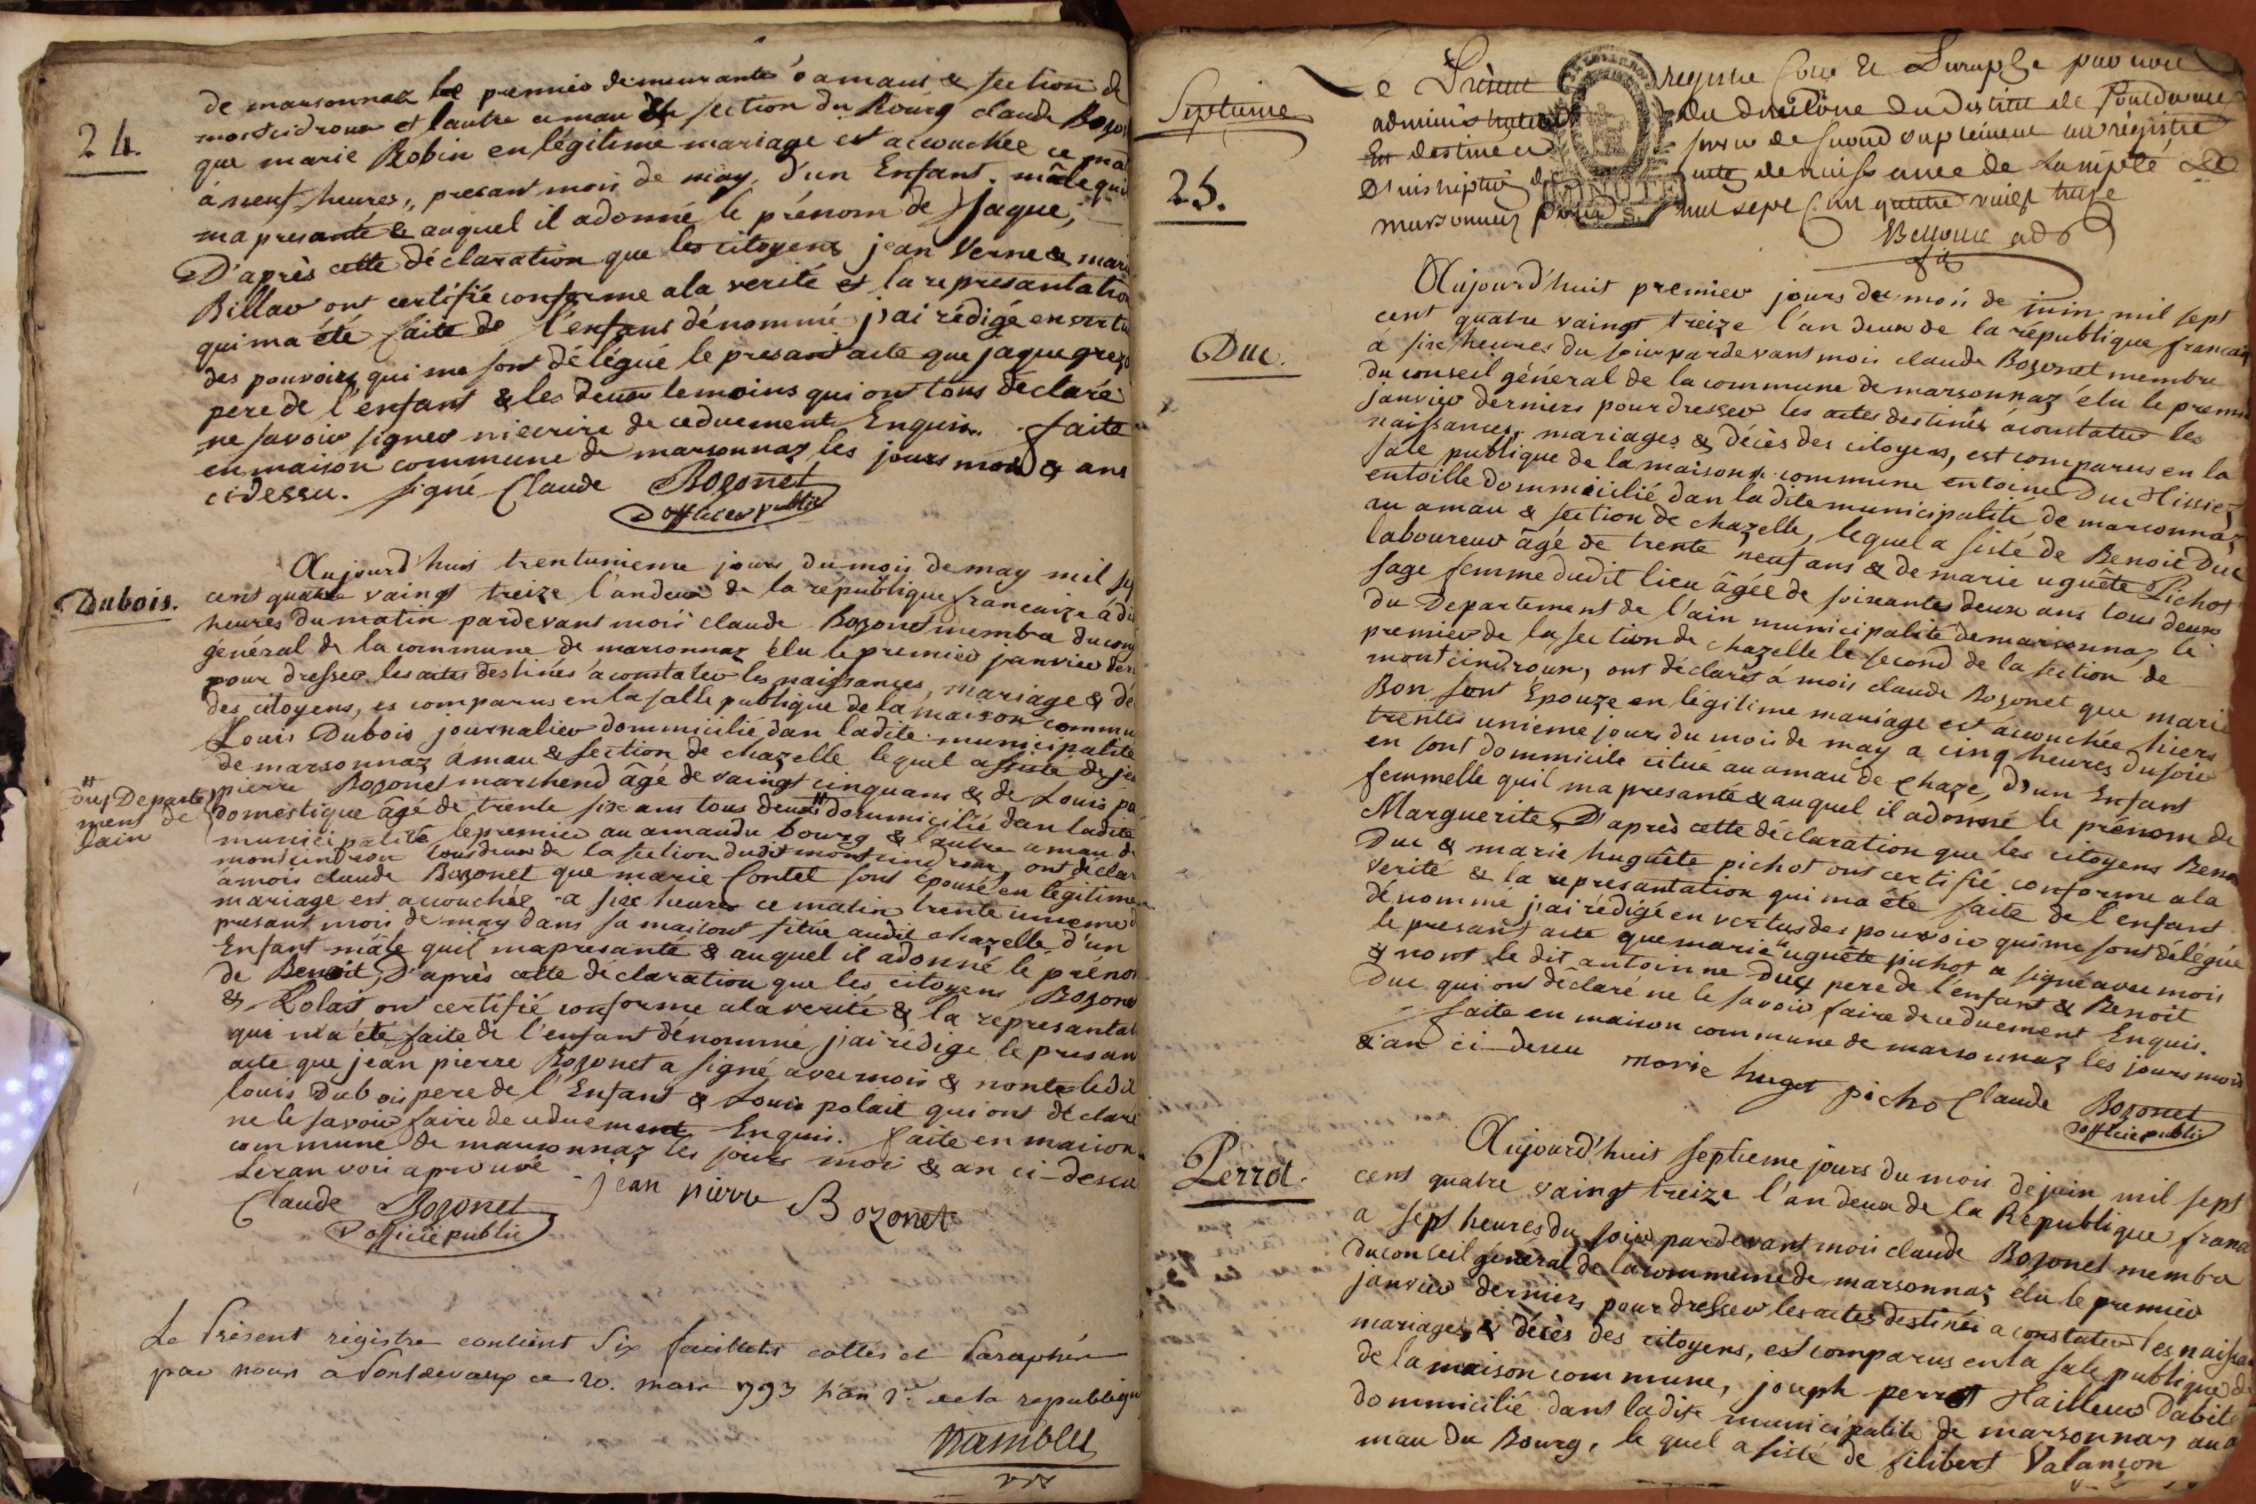 24.
de marsonnaz le premier demeurante a amaus & section de
montcindroux et lautre amau & section du Bourg claude Bozon
que marie Robin en légitime mariage est accouchée ce ma
à neuf heures, presant mois de may, d'un Enfant mâle qui
ma presanté & auquel il adonné le prénom de Jaque,
D'après cette déclaration que les citoyens jean Verne & mari
Billav ont certifié conforme ala verité et la representation
qui ma été faite de l'enfant dénommé j'ai rédigé en vertu
des pouvoirs qui me sont délégué le presant acte que jaque grez
pere de l'enfant & les deux temoins qui ont tous déclaré
ne savoir signer ni ecrire de ceduement Enquis. faite
en maison commune de marsonnaz les jours mois & ans
cidessu. signé Claude Bozonet
D'officier public
Dubois.
Aujourd'hui trentunieme jours du mois de may mil se
cent quatre vaingt treize l'an deux de la république francaize à di
heures du matin pardevant mois claude Bozonet membre du cons
général de la commune de marsonnaz élu le premier janvier der
pour dresser les actes destinés à constater les naissances, mariage & dé
des citoyens, es comparus en la salle publique de la maison commu
Louis Dubois journalier dommicilié dan ladite municipalité
de marsonnaz amau & section de chazelle lequel assisté de je
pierre Bozonet marchend âgé de vaingt cinquans & de Louis po
domestique âgé de trente six ans tous deux # dommicilié dan ladite
# ous Departe
ment de
Lain
municipalité le premier au amau du bourg & l'autre amau de
montcindrou tous deux de la section dudit montcindroux ont déclar
amois claude Bozonet que marie Contel sont épouse en légitime
mariage est accouchée a six heures ce matin trente unieme d
presant mois de may dans sa maisont sitüé audit chazelle d'un
Enfant mâle quil mapresanté & auquel il adonné le préno
de Benoit, D'après cette déclaration que les citoyens Bozone
& Polait ont certifié conforme ala verité & la represantat
que m'a été faite de l'enfant dénommé j'ai rédige le presan
acte que jean pierre Bozonet a signé avec mois & nont le dit
louis Dubois pere de l'Enfant & Louis polait qui ont déclaré
ne le savoir faire de ceduement Enquis. faite en maison
commune de marsonnaz les jours mois & an ci-dessu
Léranvoi aprouvé
Claude Bozonet jean pierre Bozonet
D'officié public
Le Présent régistre contient Six feuillets cottés et Paraphés
par nous a Pontdevaux ce 20. mars 1793 l'an 2e. de la republiqu
Septieme
25.
Le Présent registre Coté Et Paraphé par nous
administrateur du directoire du District de Pontdevaux
Est destiné a servir de second supplement au régistre
D'inscription des actes de naissance de la muplté de
marsonnaz pour mil sept Cent quatre vaingt treize
MINUTE
Duc.
Aujourd'huit premier jours du mois de juin mil sept
cent quatre vaingt treize l'an deux de la république francai
à six heures du soir pardevant mois claude Bozonet membre
du conseil général de la commune de marsonnaz élu le premie
janvier derniers pour dresser les actes destinés à constater les
naissances, mariages & décès des citoyens, est comparus en la
sale publique de la maison commune entoine Duc Tissier
entoille dommicilié dan la dite municipalité de marsonnaz
au amau & section de chazelle, lequel a sisté de Benoit Duc
laboureur âgé de trente neuf ans & de marie uguête Pichot
sage fémme dudit lieu âgée de soixante deux ans tous deux
du Departement de l'ain municipalité demarsonnaz le
premier de la section de chazelle le second de la section de
montcindroux, ont déclarés à mois claude Bozonet que marie
Bon sont Epouze en légitime mariage est accouchée hiers
trente unieme jours du mois de may a cinq heures du soir
en sont dommicile citué au amau de chaze, d'un Enfant
femmelle quil ma presanté & auquel il adonné le prénom de
Marguerite, D'après cette déclaration que les citoyens Beno
Duc & marie huguête pichot ont certifié conforme ala
verité & la representation qui ma été faite de l'enfant
dénommé j'ai rédigé en vertus des pouvoir qui me sont délégué
le presant acte que marie uguête pichot a signé avec mois
& nont le dit antoinne Duc pere de l'enfant & Benoit
Duc qui ont déclaré ne le savoir faire de ceduement Enquis.
faite en maison commune de marsonnaz les jours mois
& an ci-dessu
marie huget picho Claude Bozonet
D'officié public
Perrot.
Aujourd'huit septieme jours du mois de juin mil sept
cent quatre vaingt treize l'an deux de la République franc
a sept heures du soir pardevant mois claude Bozonet membre
du conseil général de la commune de marsonnaz élu le premier
janvier derniers pour dresser les actes destinés a constater les naissa
mariages, & décès des citoyens, est comparus en la sale publique de
de la maison commune, joseph perrot Tailleur Dabit
dommicilié dans ladite municipalité de marsonnaz au a
mau du Bourg, le quel a sisté de filibert Valançon